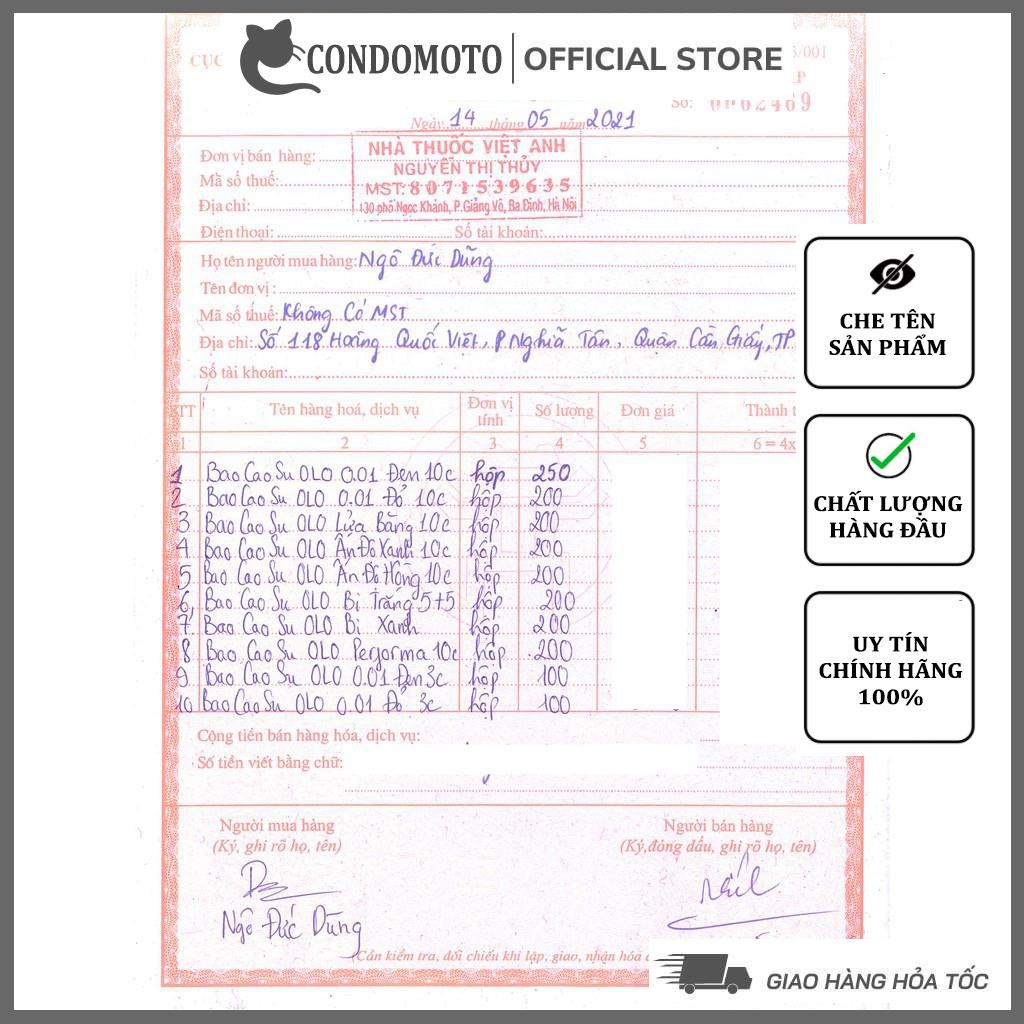 CONDOMOTO OFFICIAL STORE
CỤC
/001
Số: 0062469
Ngày 14 tháng 05 năm 2021
Đơn vị bán hàng: NHÀ THUỐC VIỆT ANH
NGUYỄN THỊ THỦY
Mã số thuế: MST: 8071539635
Địa chỉ: 130 phố Ngọc Khánh, P. Giảng Võ, Ba Đình, Hà Nội
Điện thoại: Số tài khoản:
Họ tên người mua hàng: Ngô Đức Dũng
Tên đơn vị:
Mã số thuế: Không Có MST
Địa chỉ: Số 118 Hoàng Quốc Việt, P Nghĩa Tân, Quận Cầu Giấy, TP
Số tài khoản:
STT Tên hàng hoá, dịch vụ Đơn vị tính Số lượng Đơn giá Thành t
1 2 3 4 5 6 = 4x
1 Bao Cao Su OLO 0.01 Đen 10c hộp 250
2 Bao Cao Su OLO 0.01 Đỏ 10c hộp 200
3 Bao Cao Su OLO Lửa Băng 10c hộp 200
4 Bao Cao Su OLO Ấn Đô Xanh 10c hộp 200
5 Bao Cao Su OLO Ấn Đô Hồng 10c hộp 200
6 Bao Cao Su OLO Bi Trắng 5+5 hộp 200
7 Bao Cao Su OLO Bi Xanh hộp 200
8 Bao Cao Su OLO Performa 10c hộp 200
9 Bao Cao Su OLO 0.01 Đen 3c hộp 100
10 Bao Cao Su OLO 0.01 Đỏ 3c hộp 100
Cộng tiền bán hàng hóa, dịch vụ:
Số tiền viết bằng chữ:
Người mua hàng
(Ký, ghi rõ họ, tên)
Người bán hàng
(Ký, đóng dấu, ghi rõ họ, tên)
Ngô Đức Dũng
(Cần kiểm tra, đối chiếu khi lập, giao, nhận hóa
CHE TÊN
SẢN PHẨM
CHẤT LƯỢNG
HÀNG ĐẦU
UY TÍN
CHÍNH HÃNG
100%
GIAO HÀNG HỎA TỐC